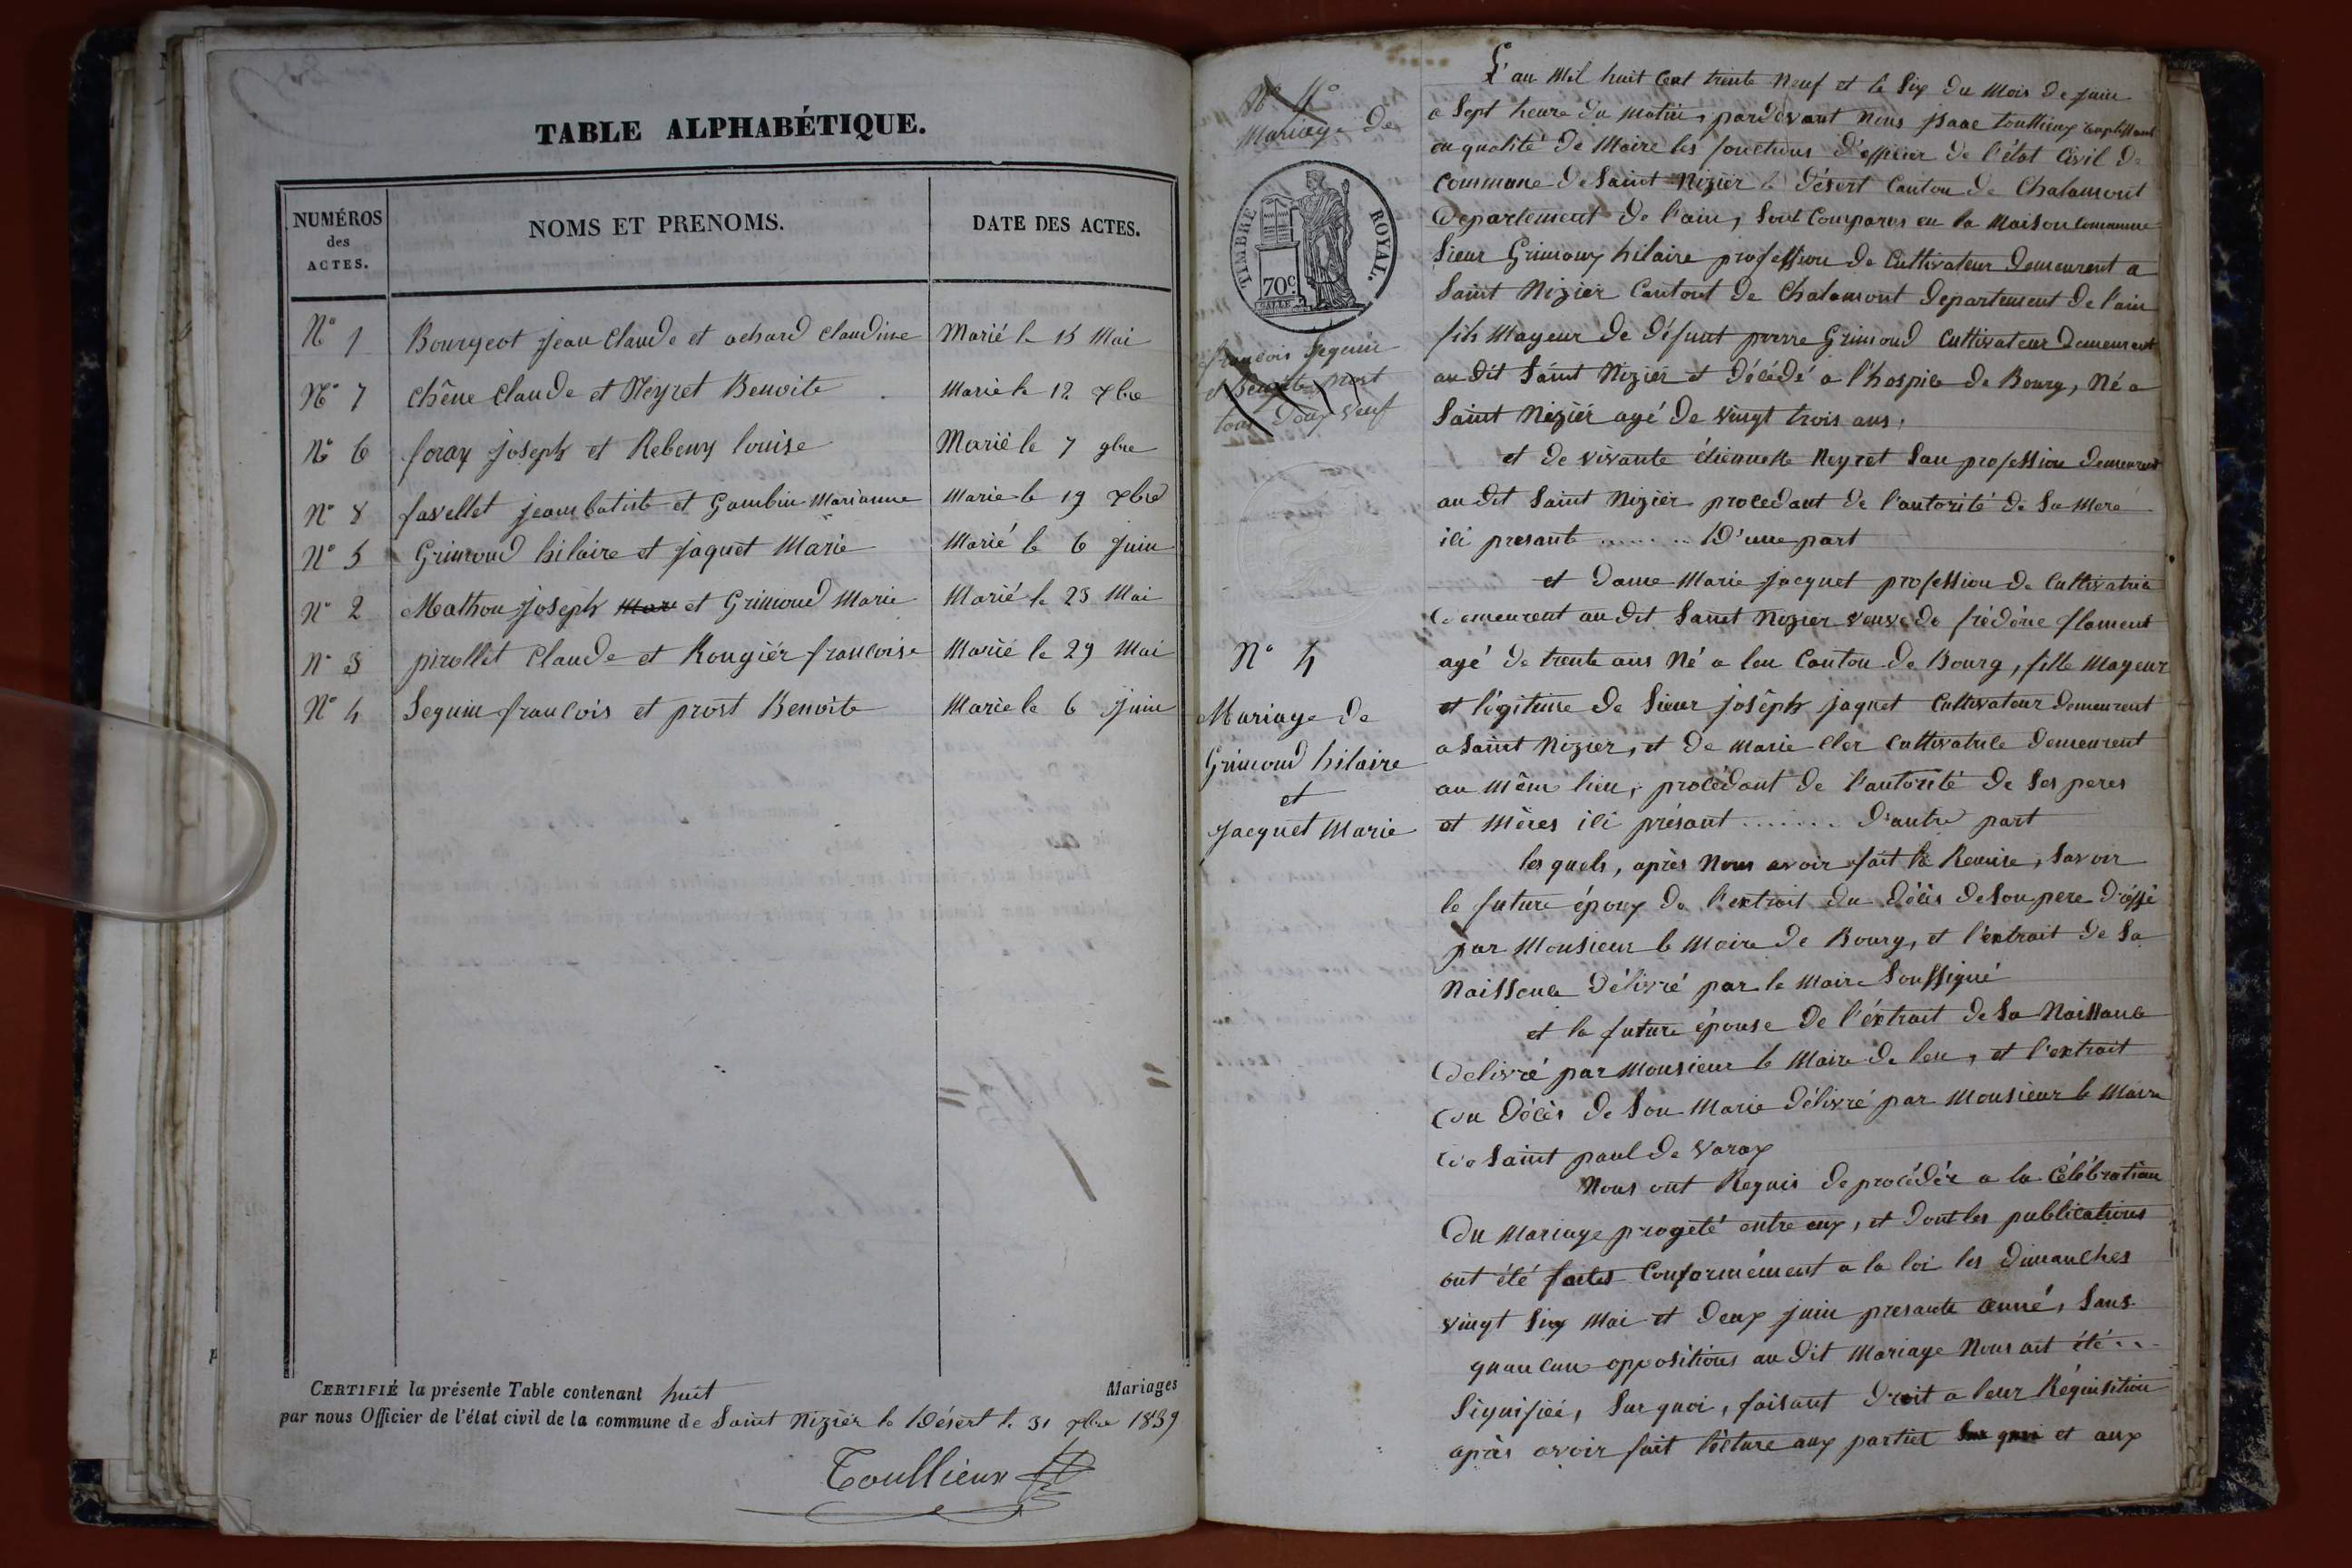 TABLE ALPHABÉTIQUE.
NUMÉROS des ACTES.
NOMS ET PRENOMS.
DATE DES ACTES.
N° 1 Bourgeot jean Claude et achard Claudine Marié le 15 Mai
N° 7 Chêne Claude et Neyret Benoite Marié le 12 7bre
N° 6 foray joseph et Rebeux louise Marié le 7 9bre
N° 8 favellet jeambatiste et Gambin Marianne Marié le 19 7bre
N° 5 Grimoud hilaire et jaquet Marie Marié le 6 juin
N° 2 Mathou joseph Mar et Grimoud Marie Marié le 23 Mai
N° 3 pirollet Claude et Rougiér francoise Marié le 29 Mai
N° 4 Seguin francois et prost Benoite Marié le 6 juin
CERTIFIÉ la présente Table contenant huit Mariages
par nous Officier de l'état civil de la commune de Saint Niziér le Désert le 31 xbre 1839
Toullieux
N° 4°
Mariage de
TIMBRE ROYAL.
70c.
francois Seguin
et Benoite prost
tous Doux Veuf
N° 4
Mariage de
Grimoud hilaire
et
Jacquet Marie
L'an Mil huit Cent trente Neuf et le Six du Mois de juin
a Sept heure du Matin, pardevant Nous jsaac toullieux remplissant
en qualité de Maire les fonctions d'officier de l'état Civil de
Commune de Saint Niziér le Désert Canton de Chalamont
Departement de l'ain, Sont Comparus en la Maison Commune
Sieur Grimoux hilaire profession de Cultivateur demeurent a
Saint Niziér Cantont de Chalamont departement de l'ain
fils Mayeur de défunt pierre Grimoud Cultivateur Demeurent
au dit Saint Niziér et Décédé a l'hospice de Bourg, Né a
Saint Niziér agé de vingt trois ans,
et de vivante étiennette Neyret San profession demeurent
au dit Saint Niziér procedant de l'autorité de Sa Mere
ici presante ........ D'une part
et dame Marie Jacquet profession de Cultivatrice
demeurent au dit Saint Niziér veuve de frédéric flament
agé de trente ans Né a leu Canton de Bourg, fille Mayeur
et légitime de Sieur joséph jaquet Cultivateur demeurent
a Saint Niziér, et de Marie Cler Cultivatrice demeurent
au même lieu, procédant de l'autorité de Ses peres
et Mères ici présant ....... D'autre part
les quels, après Nous avoir fait la Remise, Savoir
le future époux de l'extrait du décès de Son pere dréssé
par Monsieur le Maire de Bourg, et l'extrait de Sa
Naissence délivré par le Maire Soussigné
et la future épouse de l'éxtrait de Sa Naissance
Delivré par Monsieur le Maire de leu, et l'extrait
du décès de Son Marie délivré par Monsieur le Maire
de Saint paul de Varax
Nous ont Requis de procédér a la Célébration
Du Mariage progeté entre eux, et dont les publications
ont été faites Conformément a la loi les dimanches
vingt Six Mai et deux juin presante anné, Sans
quaucune oppositions au dit Mariage Nous ait été ..
Signifiéé, Sur quoi, faisant droit a leur Réquisition
après avoir fait lécture aux partiet Sur quoi et aux